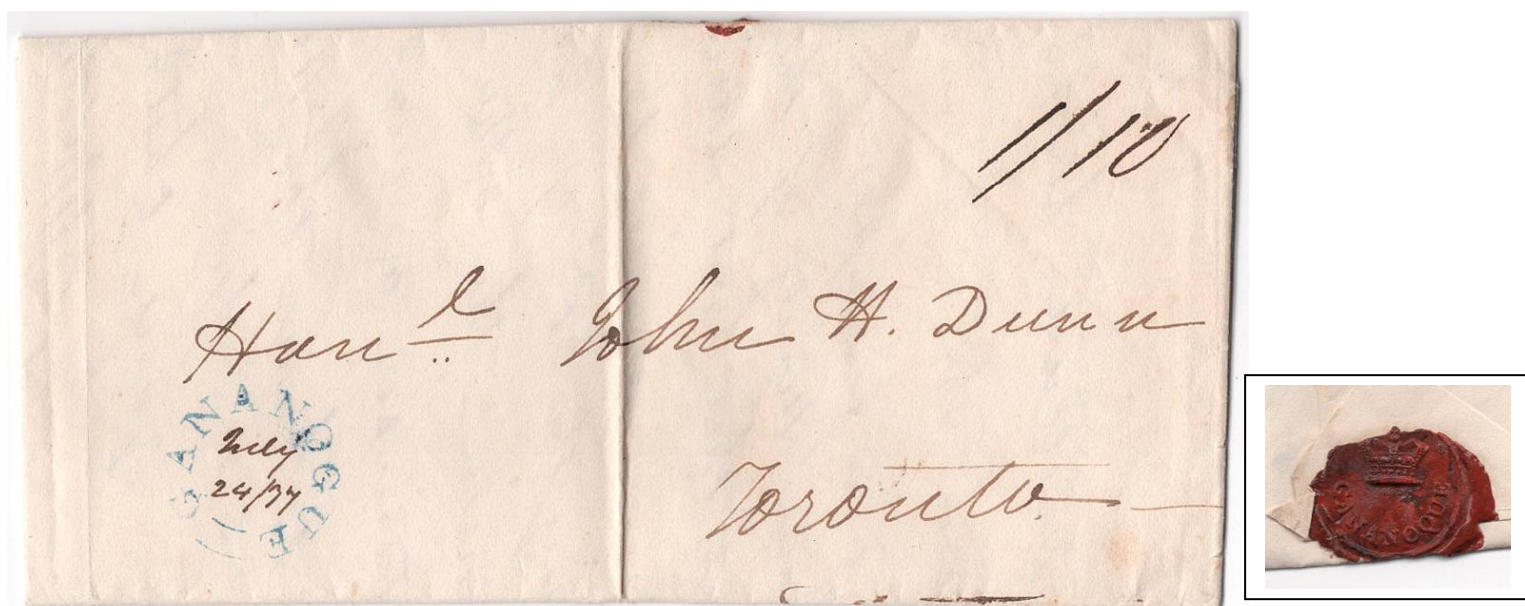 1/10
Hon.le John H. Dunn
GANANOGUE
July
24/37
Toronto.
GANANOQUE